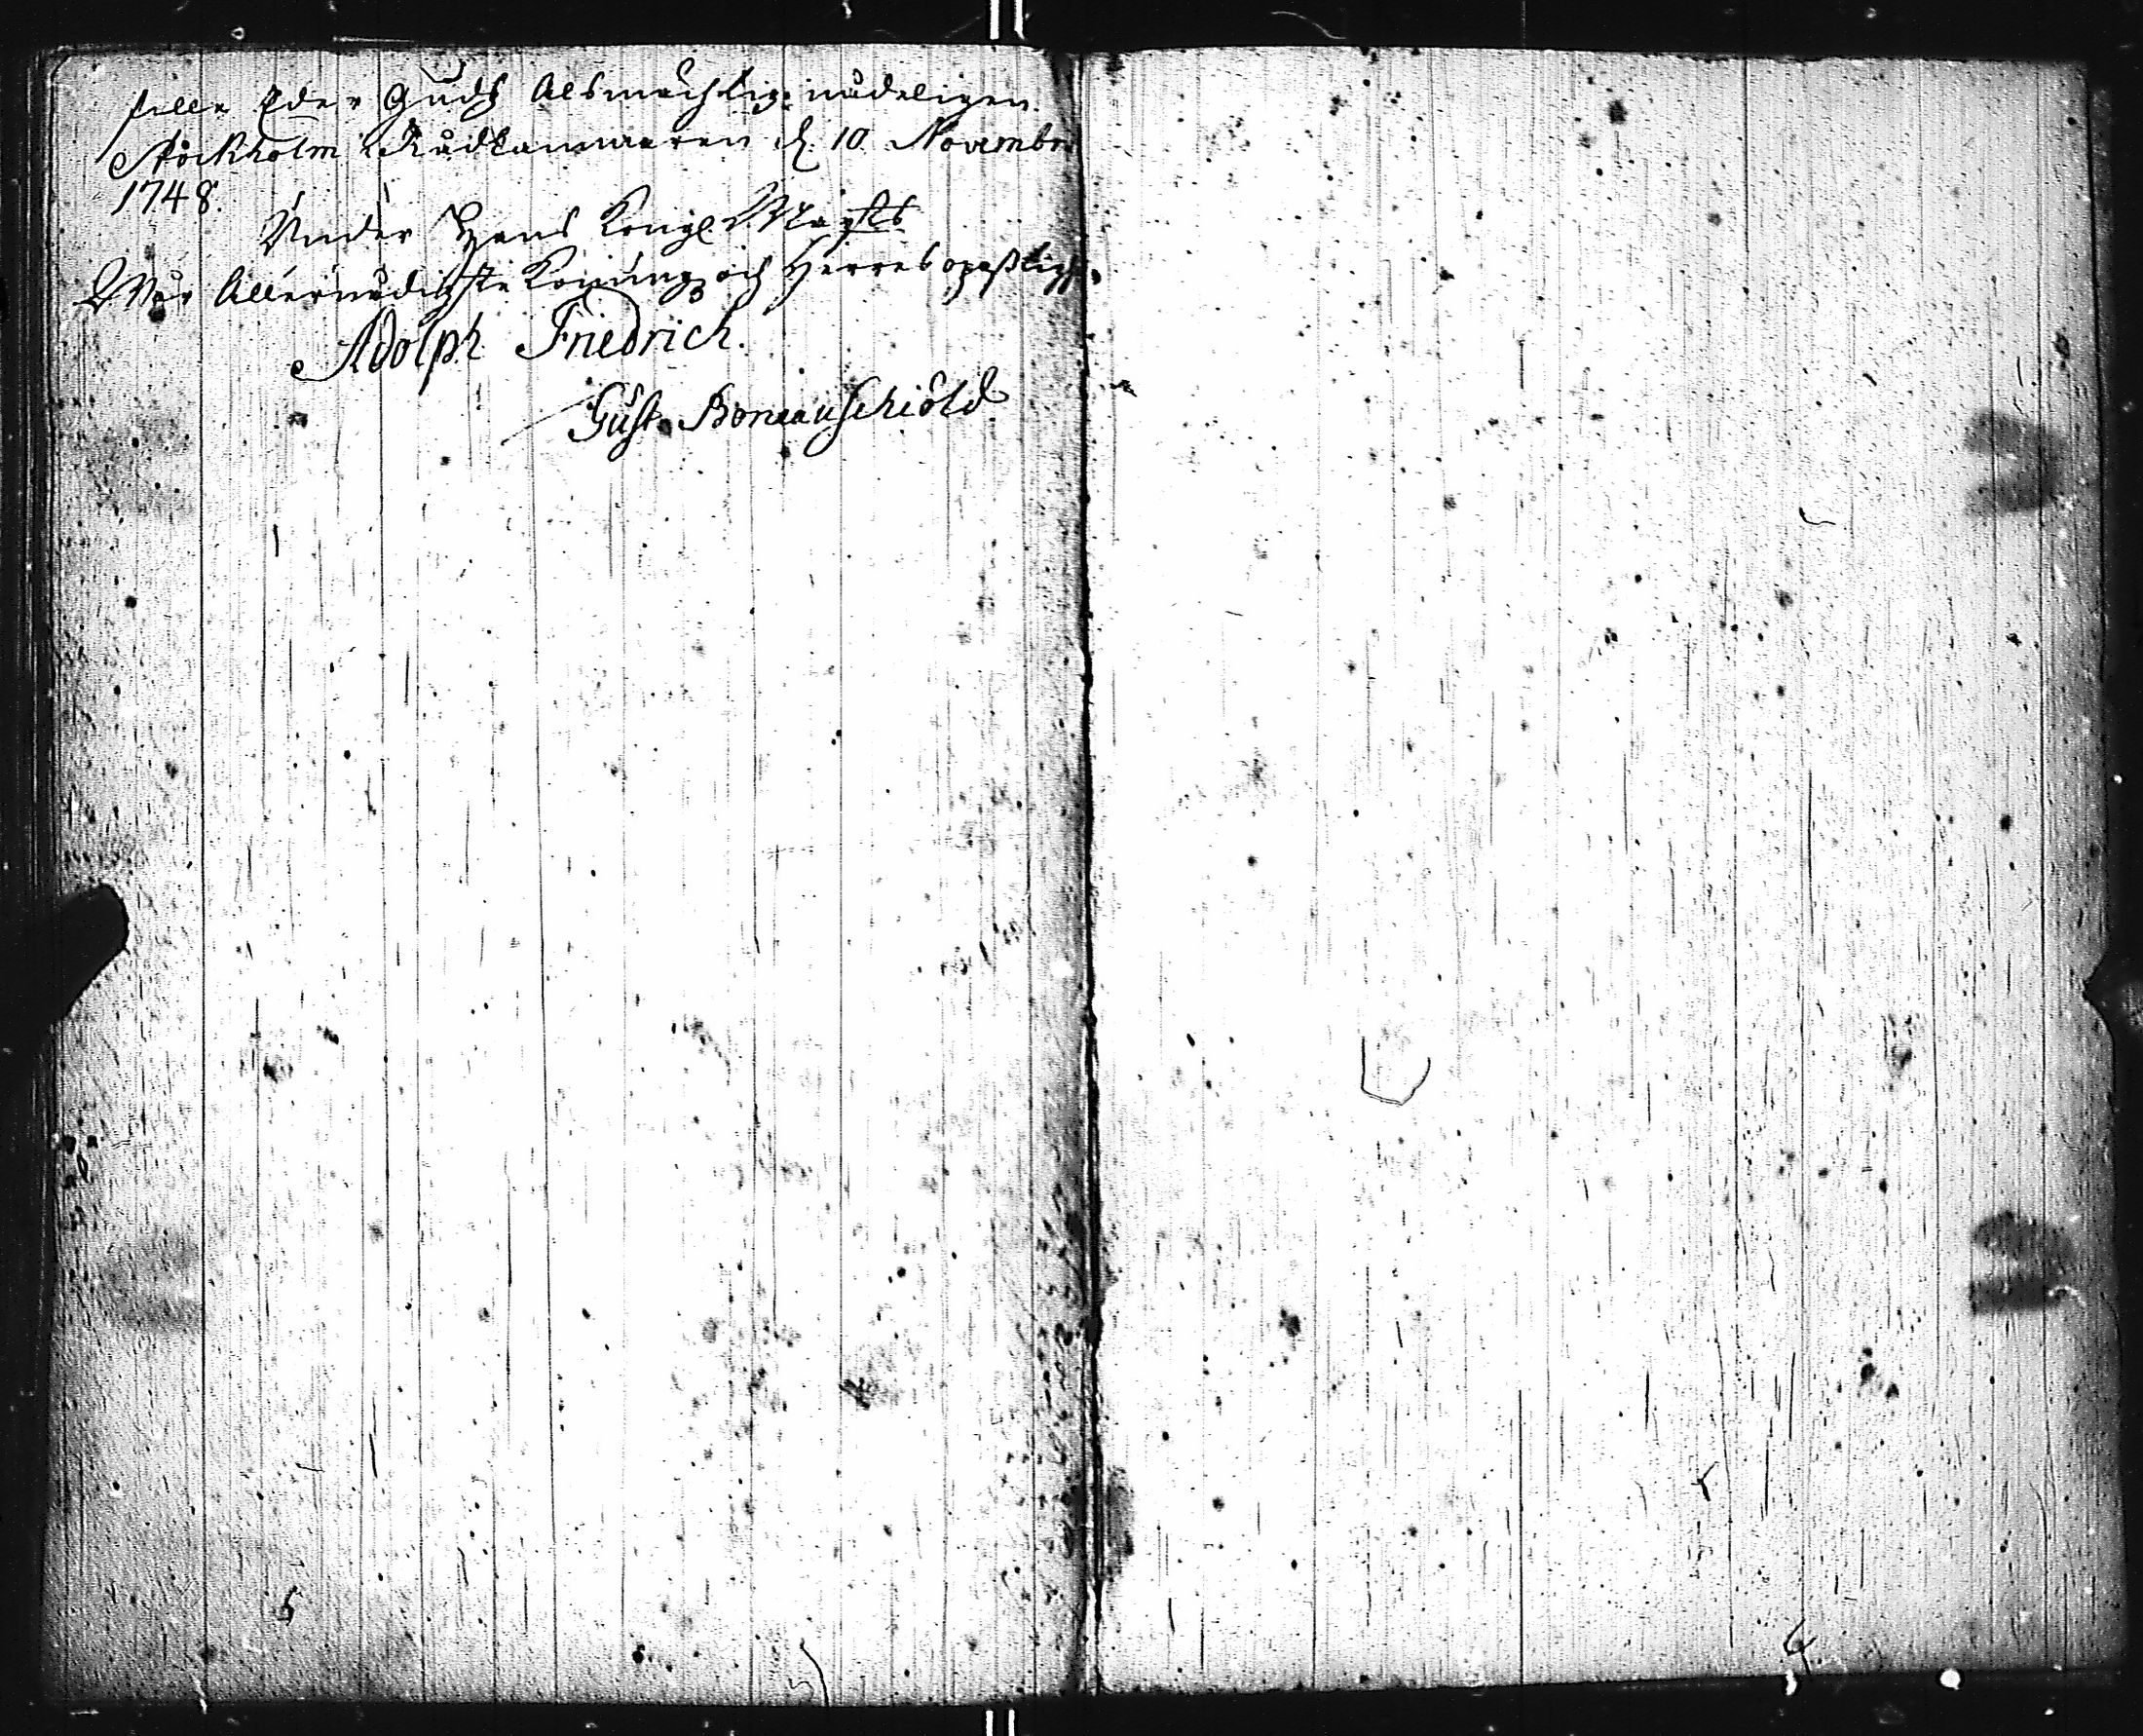 fälle Eder Gudh Alsmächtig nådeligen.
Stockholm i Rådkammaren d. 10 Novembr
1748.
Under Hans Kongl. Mayts
Wår Allernådigste Konungz och Herres opaßligh
Adolph Friedrich.
Gust. Boneauschiöld